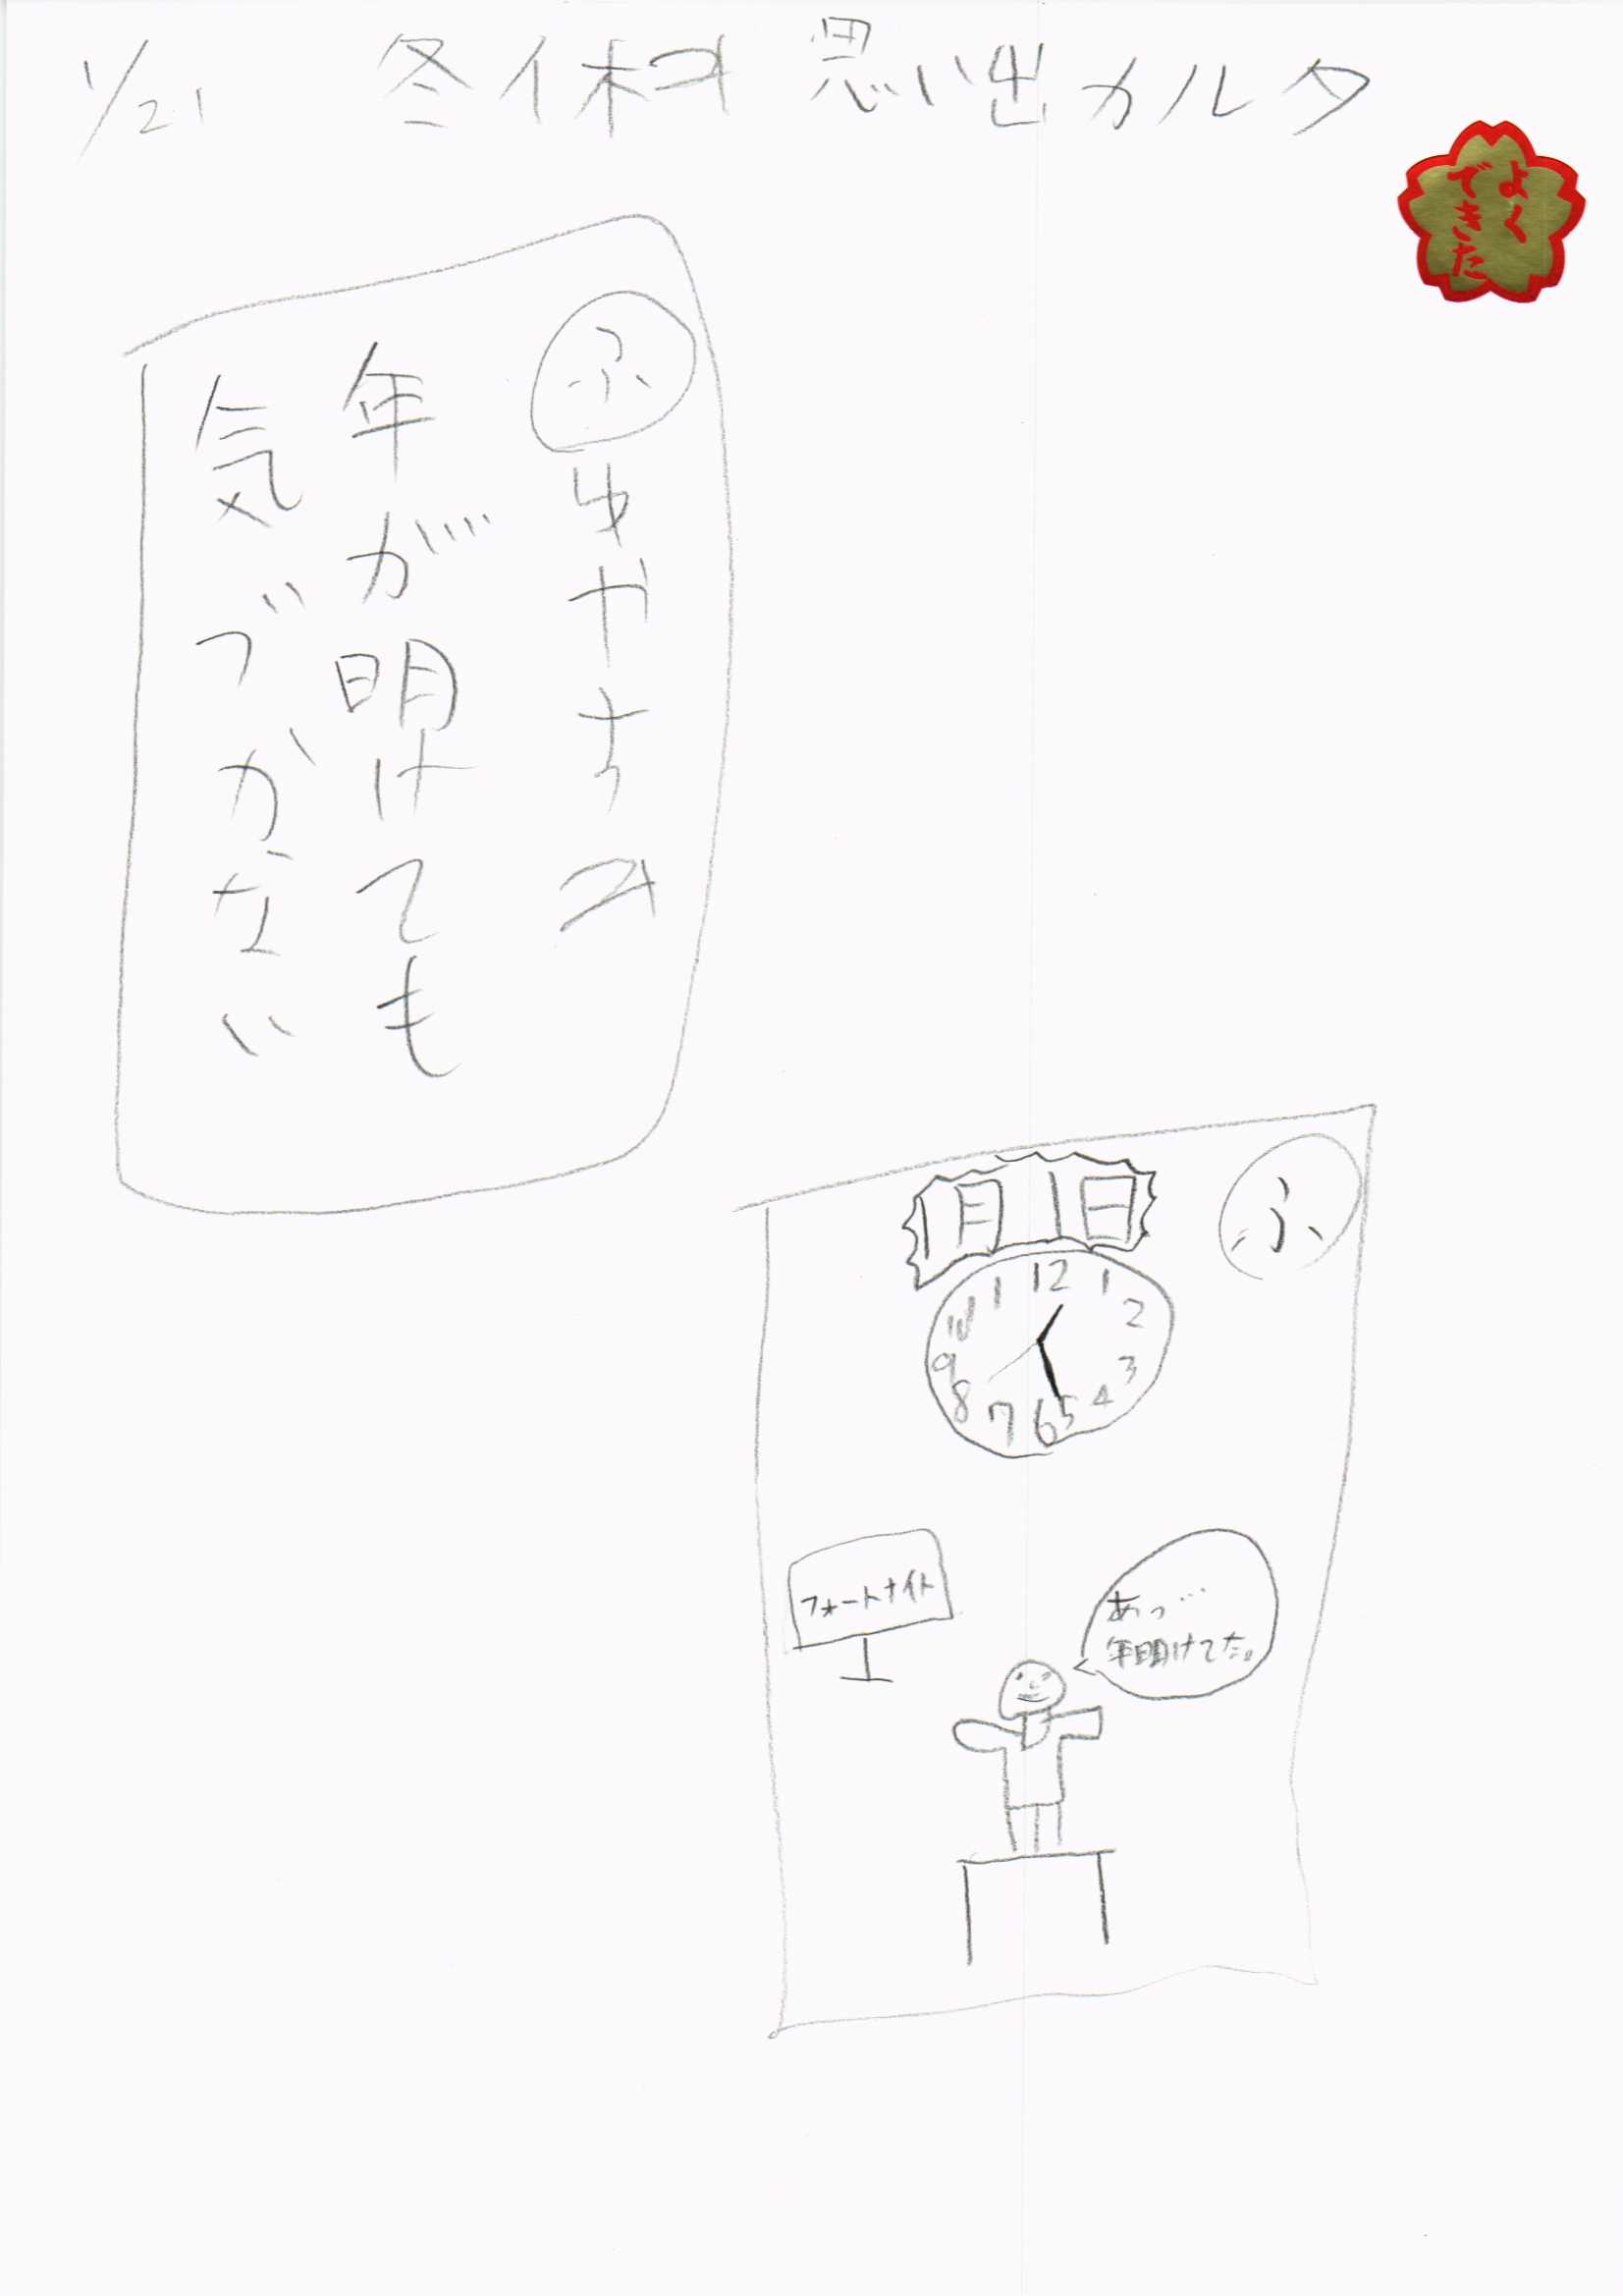 1/21 冬休み思い出カルタ
よく
できた
ふゆやすみ
年が明けても
気づかない
ふ
1月1日
12
1
2
3
4
5
6
7
8
9
10
11
フォートナイト
あっ…
年明けてた。